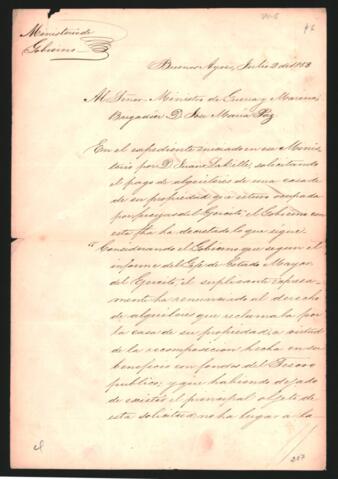 Ministerio de
Gobierno
Buenos Ayres, Julio 2 de 1853
Al Señor Ministro de Guerra y Marina,
Brigadier D. José María Paz
En el expediente iniciado en ese Minis-
terio por D. Juan Labille, solicitando
el pago de alquileres de una casa de
de su propiedad que estuvo ocupada
por piezas del Ejército, el Gobierno con
esta fha ha decretado lo que sigue.
"Considerando el Gobierno que segun el
informe del Gefe de Estado Mayor
del Ejercito, el suplicante expresa-
mente ha renunciado al derecho
de alquileres que reclamaba por
la casa de su propiedad, a virtud
de la recomposicion hecha en su
beneficio con fondos del Tesoro
publico; y que habiendo dejado
de existir el principal objeto de
esta solicitud, no ha lugar a la
207